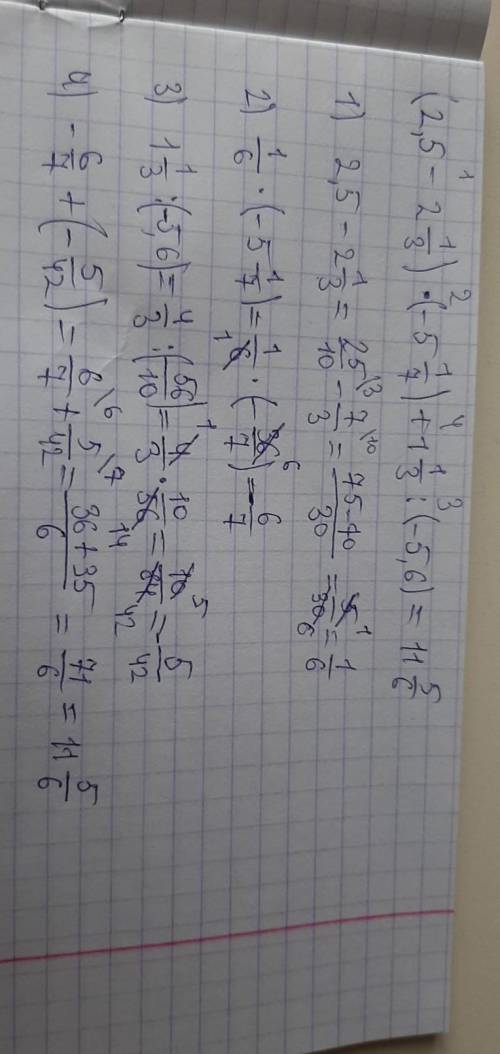 (2,5 - 2 1/3) · (-5 1/7) + 1 1/3 : (-5,6) = 11 5/6
1) 2,5 - 2 1/3 = 25/10 \3 - 7/3 \10 = 75-70/30 = 5/30 = 1/6
2) 1/6 · (-5 1/7) = 1/6 · (-36/7) = -6/7
3) 1 1/3 : (-5,6) = 4/3 : (56/10) = 4/3 · 10/56 = 10/84 = -5/42
4) -6/7 + (-5/42) = 6/7 \6 + 5/42 \7 = 36+35/6 = 71/6 = 11 5/6